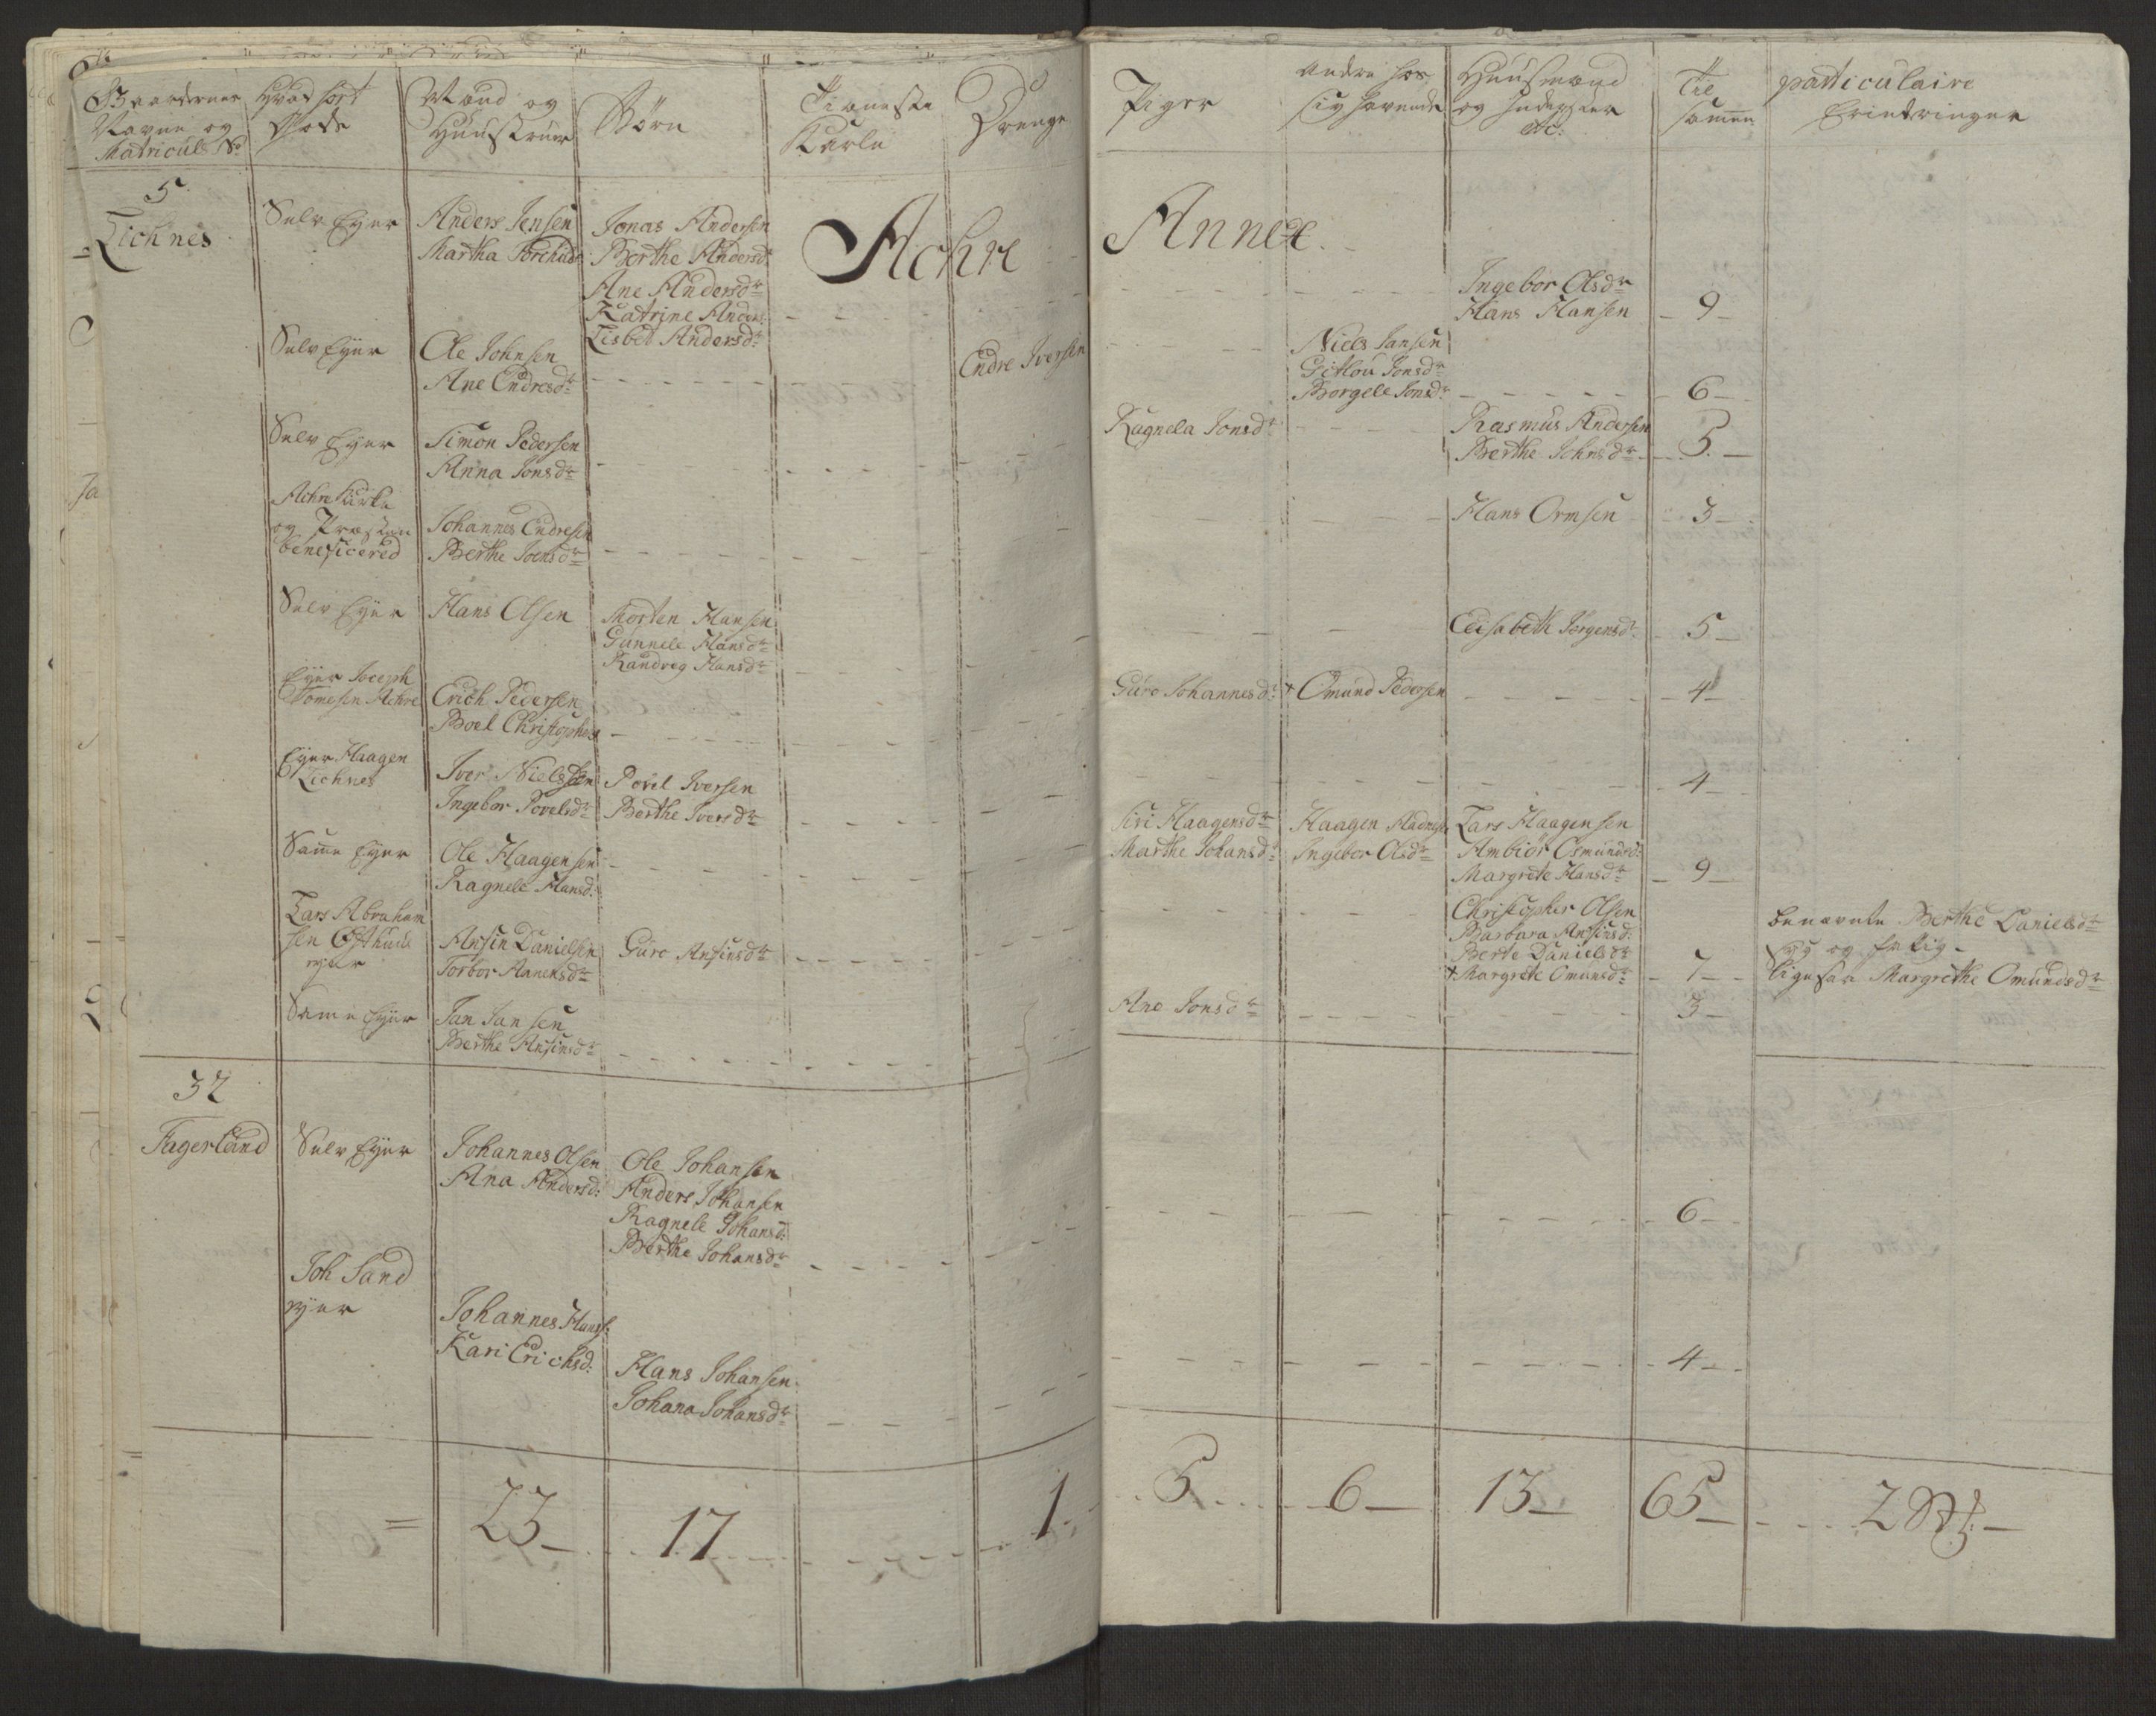 Gaardernes
Navne og
Matricul No
Hvad sort
Gods
Mænd og
Huustruer
Børn
Tieneste
Karle
Drenge
Piger
Andre hos
sig havende
Huusmænd
og Inderster
etc:
Til
samen
particulaire
Erindringer
Achre Annex
5
Lichnes
Selv Eyer
Anders Jensen
Martha
Jonas Andersen
Berthe Andersdr
Ane Andersdr
Katrine Anders:
Lisbet Andersdr
Ingebor Olsdr
Hans Hansen
9
Selv Eyer
Ole Johnsen
Ane Endresdr
Endre Iversen
Niels Jansen
Gitlou Jonsdr
Borgele Jonsdr
6
Selv Eyer
Simon Pedersen
Anna Jonsdr
Ragnela Jonsdr
Rasmus Andersen
Berthe Johnsdr
5
Achre Kirke
og Præsten
beneficered
Johannes Endresen
Berthe Joensdr
Hans Ormsen
3
Selv Eyer
Hans Olsen
Morten Hansen
Gunnele Hansdr
Randveg Hansdr
Elisabeth Jørgensdr
5
Eyer Joseph
Tomesen Achre
Erich Pedersen
Boel Christophersd
Guro Johannesdr
+ Omund Pedersen
4
Eyer Haagen
Lichnes
Iver Nielssen
Ingebor Povelsdr
Povel Iversen
Berthe Iversdr
4
Same Eyer
Ole Haagensen
Ragnele Hansd:
Siri Haagensdr
Marthe Johansdr
Haagen
Ingebor Olsdr
Lars Haagensen
Ambiør Osmundsd:
Margrete Hansdr
9
Lars Abraham
sen Østhuus
eyer
Ansin Danielsen
Torbor Aanensdr
Guro Ansinsdr
Christopher Olsen
Barbara Ansinsd:
Berte Danielsdr
+ Margrete Omunsdr
7
benævnte Berthe Danielsdr
syg og fatig
ligesaa Margrethe Omundsdr
Same Eyer
Jan Jansen
Berthe Ansinsdr
Ane Jonsdr
3
32
Fagerland
Selv Eyer
Johannes Olsen
Ana Andersd:
Ole Johansen
Anders Johansen
Ragnele Johansd:
Berthe Johansdr
6
Joh Sand
eyer
Johannes Hans:
Kari Erichsd:
Hans Johansen
Johana Johansdr
4
= 23 17 1 5 6 13 65 2